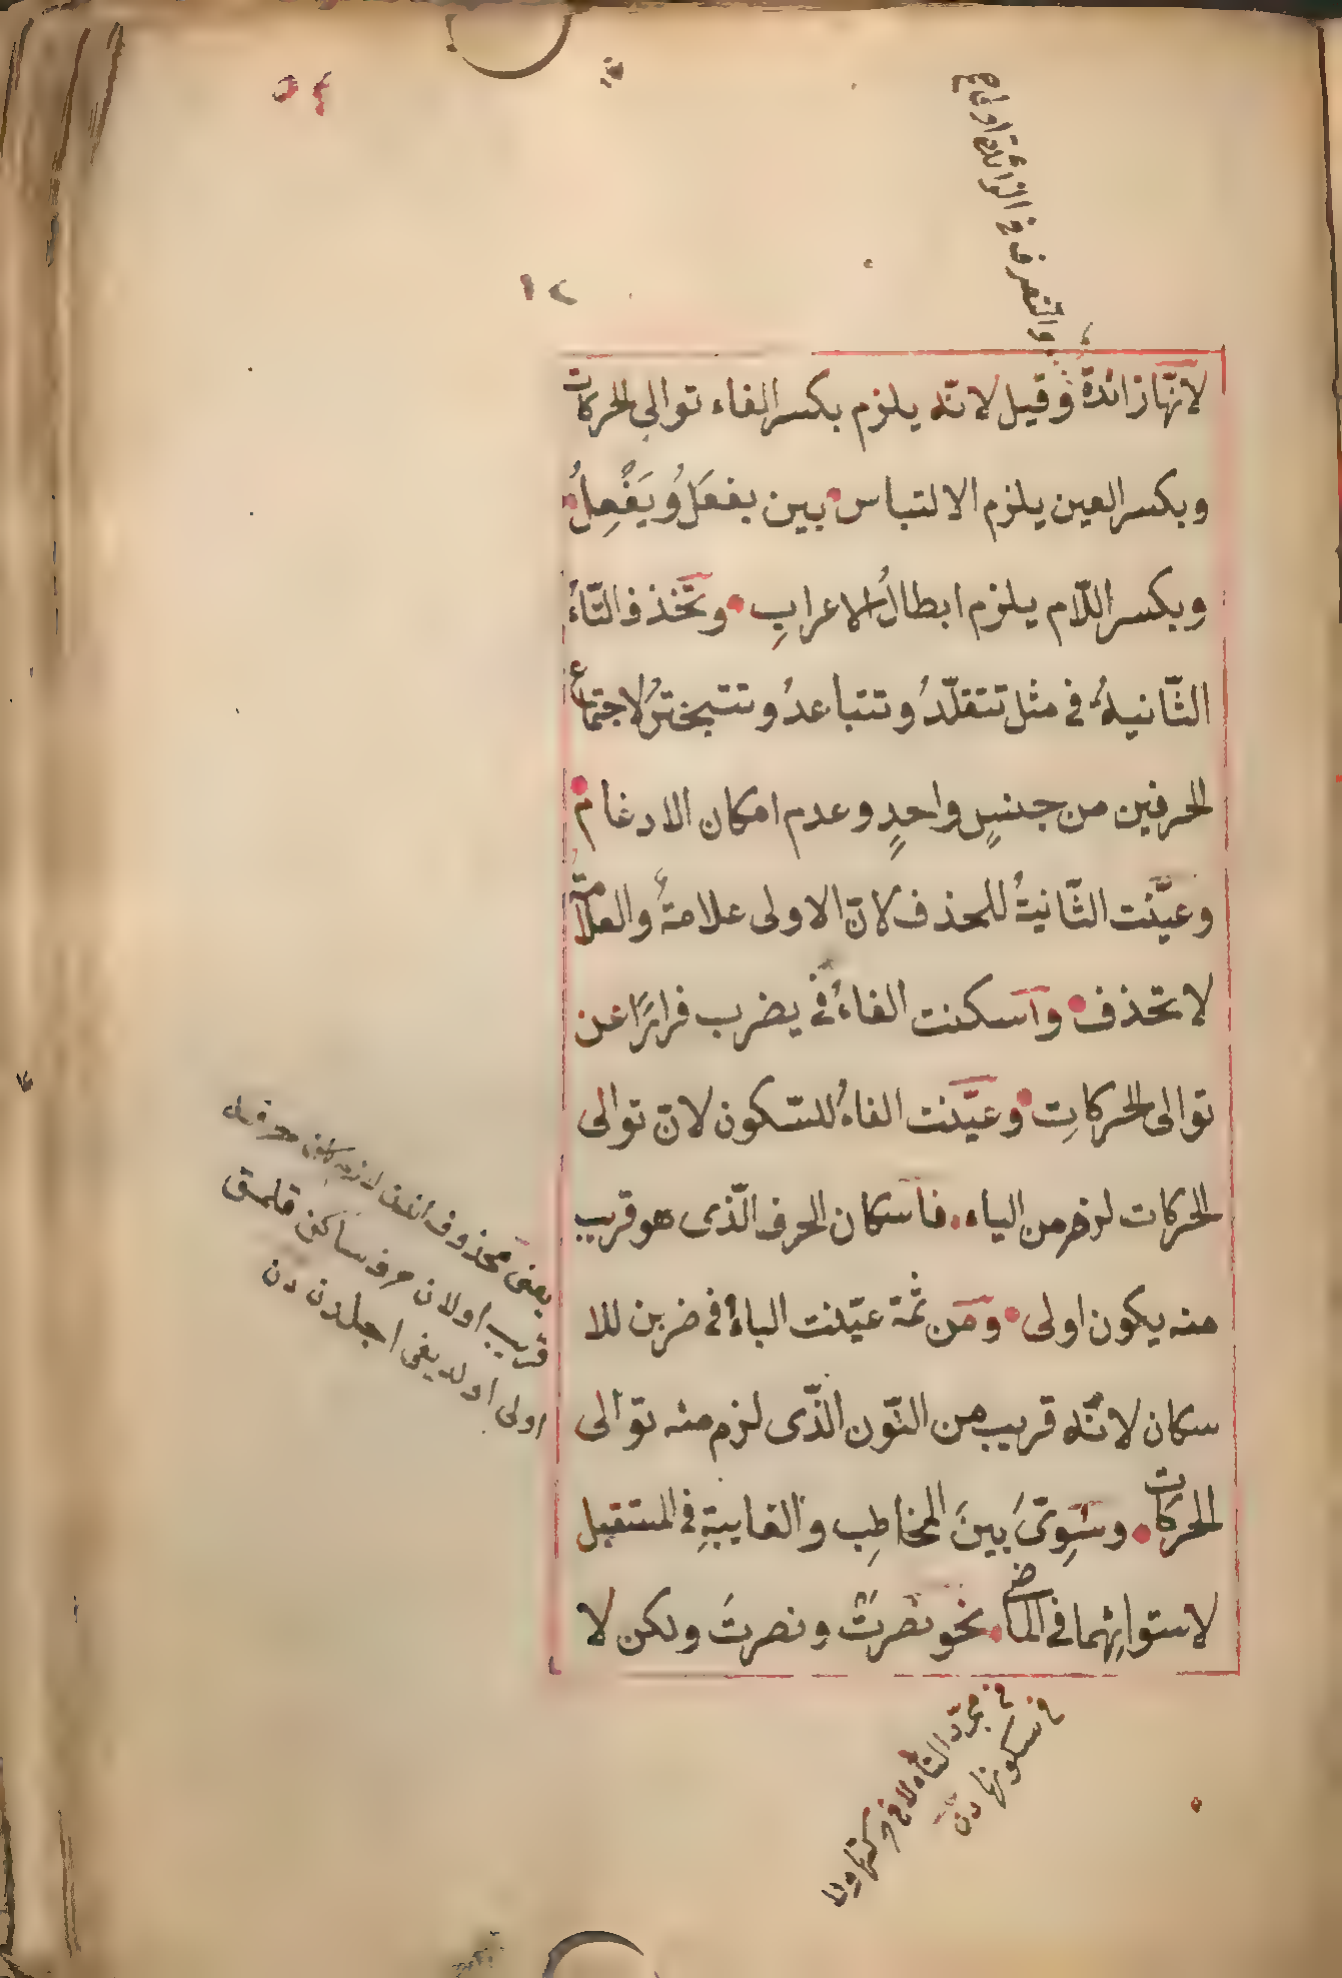 ٥٤
١٢
والتصرف في الزائدة اولى
لانّها زائدة وقيل لانّه يلزم بكسر الفاء توالى الحركات
وبكسر العين يلزم الالتباس بين يفعَلُ ويَفْعِلُ
وبكسر اللّام يلزم ابطالُ الاعرابِ وتحذف التّاءُ
الثّانيةُ في مثل تتقلّدُ وتتباعدُ وتتبخترُ لاجتماع
الحرفين من جنسٍ واحدٍ وعدم امكان الادغام
وعيّنت الثّانيةُ للحذف لانّ الاولى علامةٌ والعلامة
لا تحذف واسكنت الفاءُ في يضرب فرارًا عن
توالى الحركاتِ وعيّنت الفاءُ للسّكون لانّ توالى
الحركات لزم من الياء فاسكان الحرف الّذى هو قريب
منه يكون اولى ومن ثمّة عيّنت الباءُ في ضربن للا
سكان لانّه قريب من النّون الّذى لزم منه توالى
الحركات وسُوِّىَ بينَ المخاطِب والغايبةِ في المستقبل
لاستوائهما في الماضى نحو نصرتْ ونصرتَ ولكن لا
يعنى محذوف
قريب اولان حرف ساكن قلمق
اولى اولديغى اجلدن دن
في مجرّد التاء لا في حركتها ولا
في سكونها دن